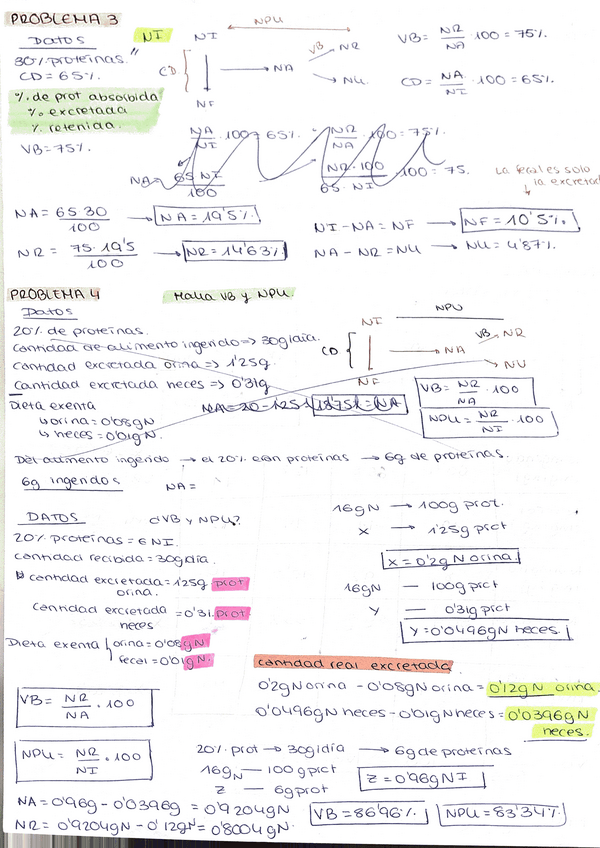 PROBLEMA 3
DATOS
NI
30% proteinas. "
CD = 65%
% de prot absorbida
% excretada
% retenida.
VB = 75%
NPU
NI
CD
NF
NA
VB
NR
NU
VB = NR/NA · 100 = 75%
CD = NA/NI · 100 = 65%
NA/NI · 100 = 65%
NR/NA · 100 = 75%
NA = 65 · NI/100
NR · 100/65 · NI · 100 = 75.
La fecal es solo
la excretad
NA = 65 · 30/100 → NA = 19'5%
NI - NA = NF → NF = 10'5%
NR = 75 · 19'5/100 → NR = 14'63%
NA - NR = NU → NU = 4'87%
PROBLEMA 4
Halla VB y NPU.
DATOS
20% de proteinas.
Cantidad de alimento ingerido => 30g/dia.
Cantidad excretada orina => 1'25g.
Cantidad excretada heces => 0'31g
Dieta exenta
↳ orina = 0'08gN
↳ heces = 0'01gN.
NA = 20 - 1'25 = 18'75% = NA
NPU
NI
CD
NF
NA
VB
NR
NU
VB = NR/NA · 100
NPU = NR/NI · 100
Del alimento ingerido → el 20% eran proteinas → 6g de proteinas.
6g ingeridos
NA =
DATOS
¿VB y NPU?
20% proteinas = 6 NI.
cantidad recibida = 30g/dia.
cantidad excretada = 1'25g prot
orina.
Cantidad excretada = 0'31. prot
heces
Dieta exenta
orina = 0'08gN
fecal = 0'01gN.
16gN → 100g prot.
x → 1'25g prot
x = 0'2g N orina.
16gN — 100g prot
y — 0'31g prot
y = 0'0496gN heces.
cantidad real excretada
0'2gN orina - 0'08gN orina = 0'12gN orina.
0'0496gN heces - 0'01gN heces = 0'0396gN
heces.
VB = NR/NA · 100
NPU = NR/NI · 100
20% prot → 30g/dia → 6g de proteinas
16gN — 100g prot
z — 6g prot
z = 0'96g NI
NA = 0'96g - 0'0396g = 0'9204gN
NR = 0'9204gN - 0'12gN = 0'8004gN.
VB = 86'96%
NPU = 83'34%